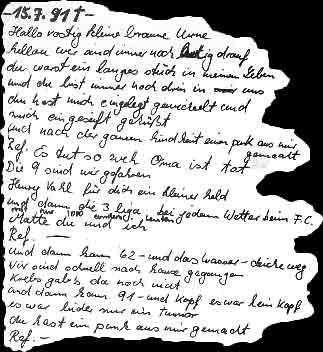 -15.7.91†-
Hallo rostig kleine braune Urne
wir sind immer noch lustig drauf
du warst ein langes stück in meinem Leben
und du bist immer noch drin in uns
du hast mich eingelegt gewickelt und
mich eingeseift geküßt
und nach der ganzen Kindheit einen punk aus mir
gemacht
Ref. Es tut so weh Oma ist tot
Die 9 sind wir gefahren
Henry Vahl für dich ein kleiner held
und dann die 3 liga bei jedem Wetter beim F.C.
mit nur 1000
Hatte du und ich
Ref. —
und dann kam '62 - und das wasser - deiche weg
wir sind schnell nach hause gegangen
Krebs gab's da noch nicht
und dann kam 91 - und Kopf es war kein Kopf
es war leider nur ein Tumor
du hast ein punk aus mir gemacht
Ref. -